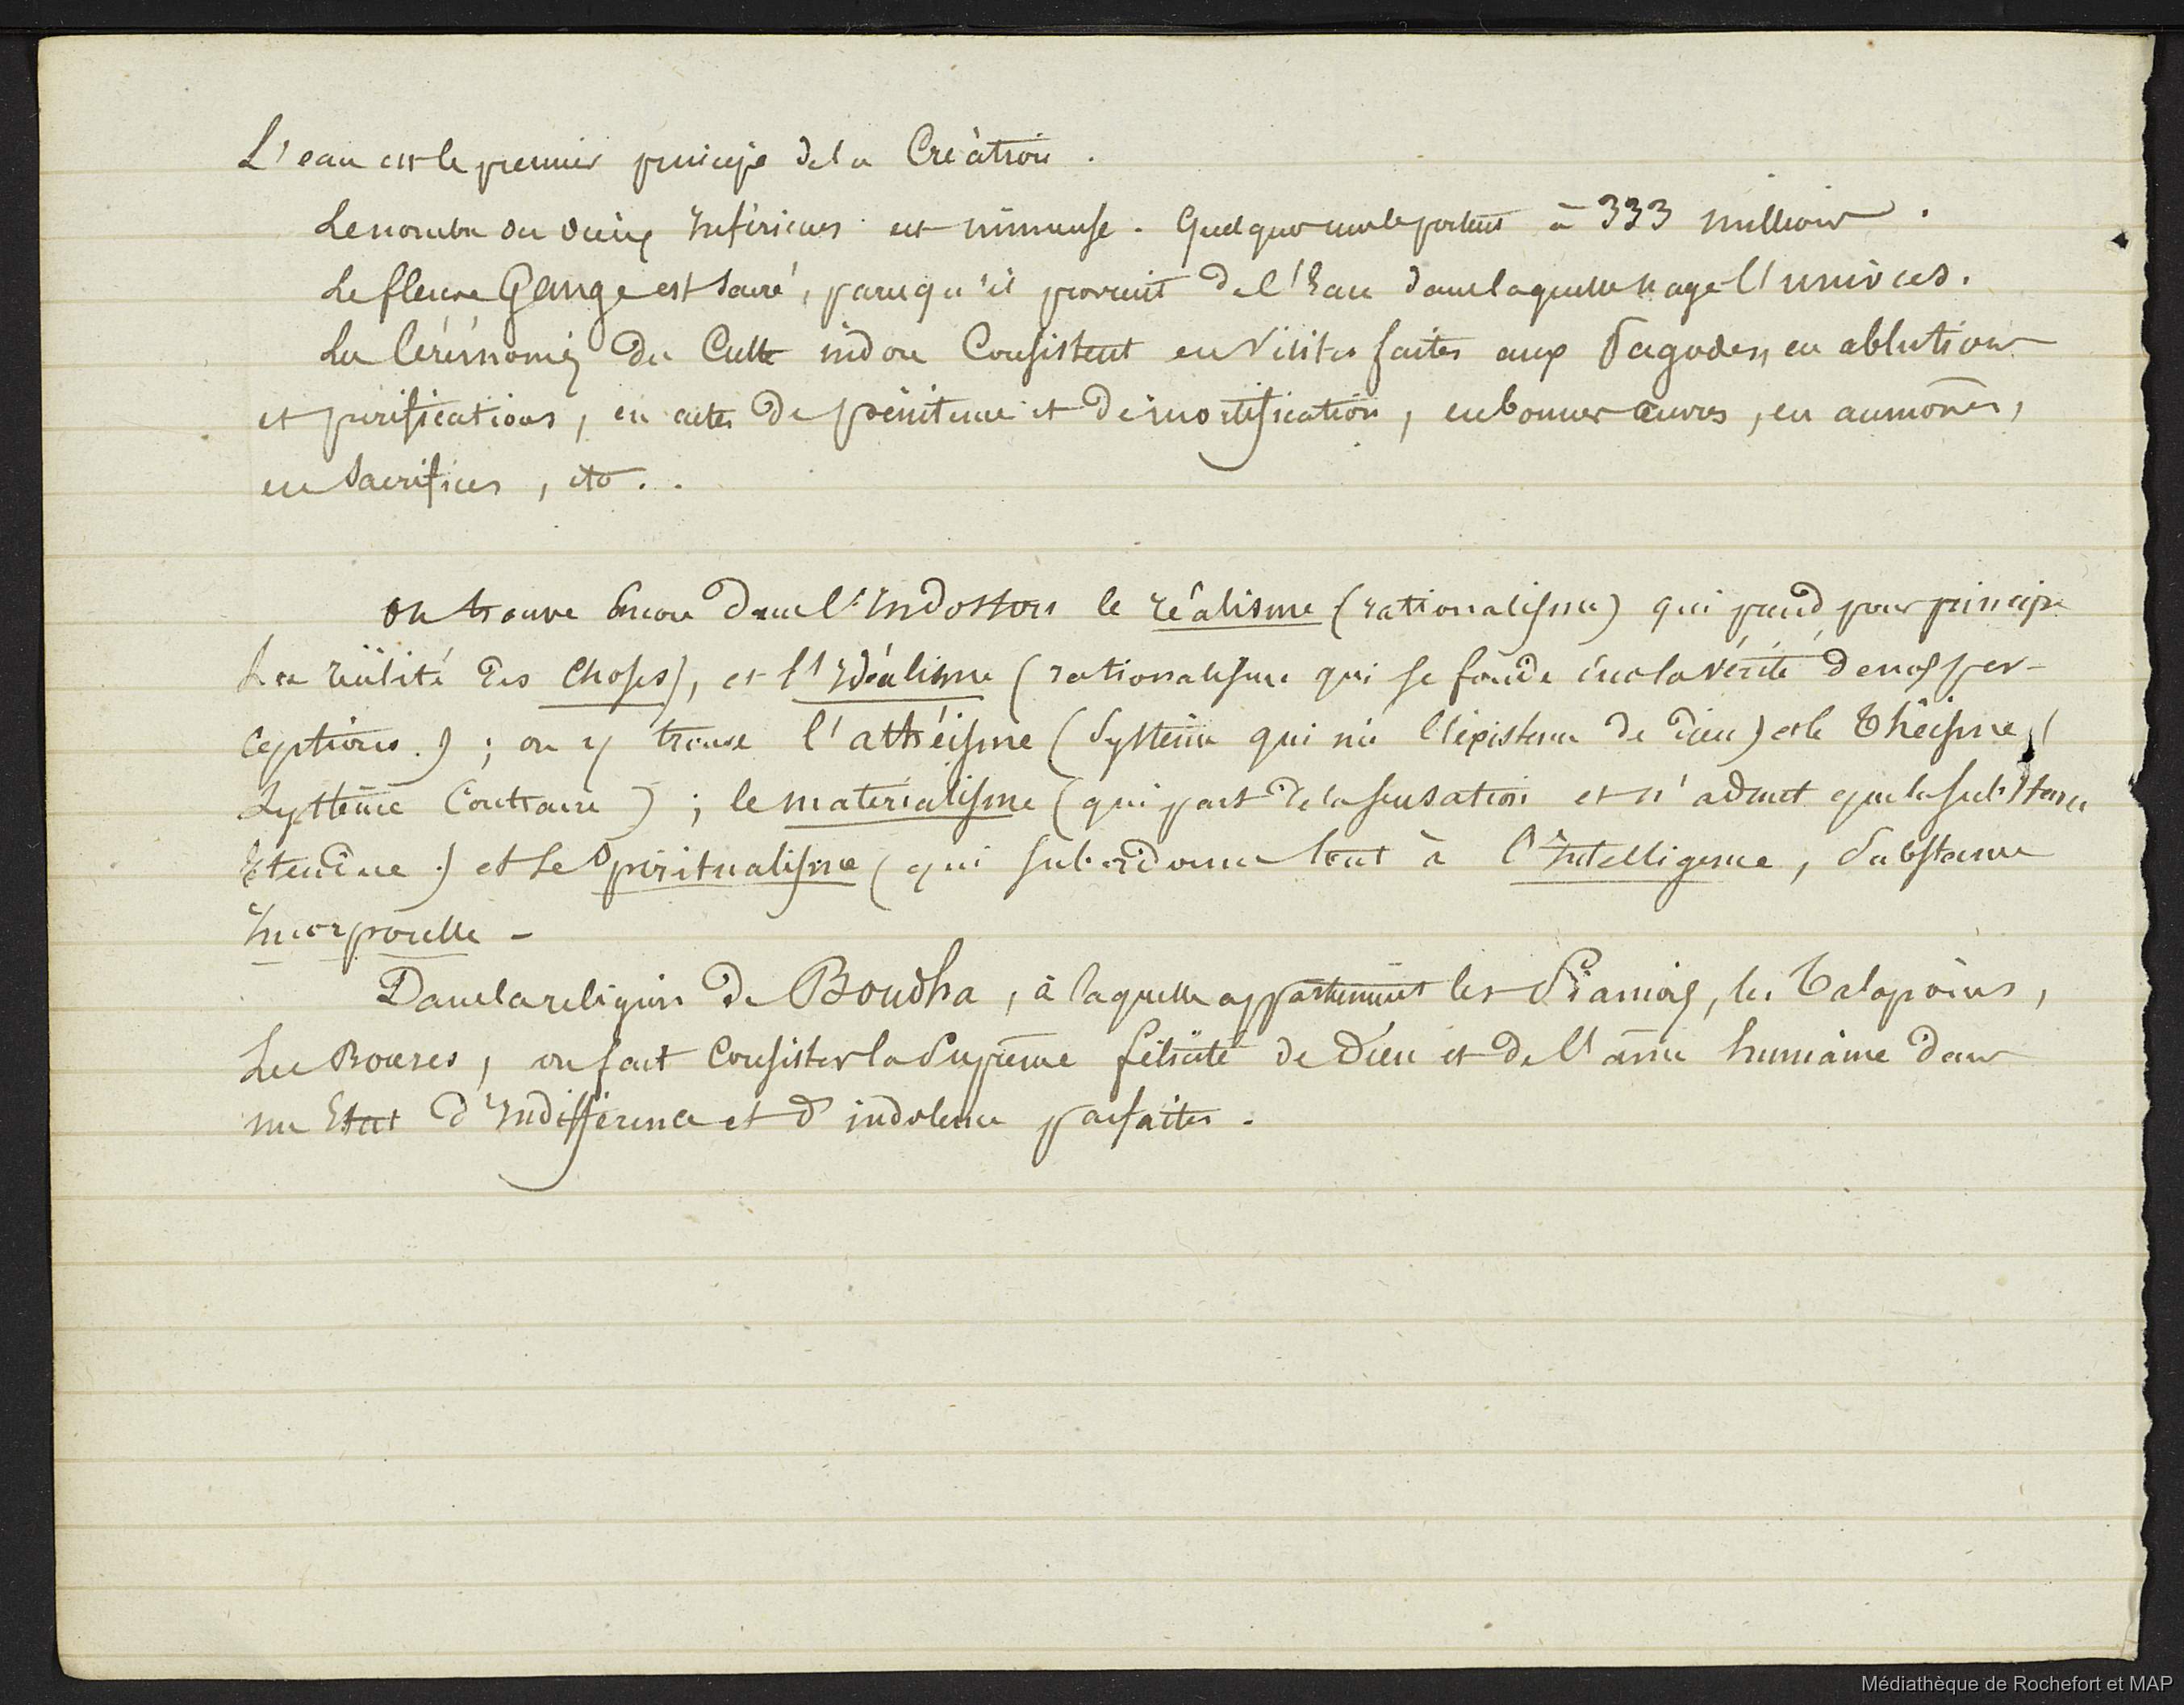 L'eau est le premier principe de la Création.
Le nombre des dieux Inférieurs est immense. Quelques uns le portent à 333 millions.
Le fleuve Gange est sacré, parce qu'il provient de l'Eau dans laquelle nage l'univers.
Les Cérémonies du Culte indou Consistent en Visites faites aux Pagodes, en ablutions
et purifications, en actes de pénitence et de mortification, en bonnes œuvres, en aumônes,
en Sacrifices, etc..
On trouve Encore dans l'Indostan le réalisme (rationalisme) qui prend pour principe
La réalité des Choses), et l'Idéalisme (rationalisme qui se fonde sur la vérité de nos per-
ceptions.) ; on y trouve l'athéisme (Système qui nie l'existence de Dieu) et le Théisme (
Système Contraire) ; le matérialisme (qui part de la sensation et n'admet que la substance
Etendue.) et le Spiritualisme (qui subordonne tout à l'Intelligence, Substance
Incorporelle -
Dans la religion de Boudha, à laquelle appartiennent les Siamois, les Talapoins,
Les Bonzes, on fait Consister la Suprême félicité de Dieu et de l'âme humaine dans
un Etat d'Indifférence et d'indolence parfaites.
Médiathèque de Rochefort et MAP